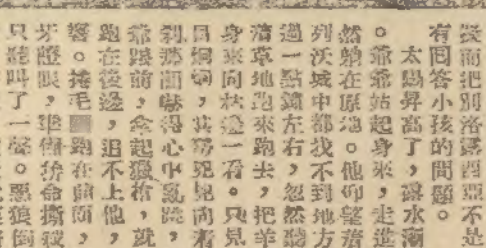 而把別洛露西亞不是
有回答小孩的問題。
太陽昇高了，露水潮
。爺爺站起身來，走進
然躺在原地。他仰望着
列沃城中都找不到地方
過一點鐘左右，忽然聽
草地跑來跑去，把羊
身來向林邊一看。只見
目炯炯，其勢兇兇向着
刹那間嚇得心中亂跳，
爺跟前，拿起獵槍，就
跑在後邊，追不上他，
響。捲毛跑在前面，
牙瞪眼，準備拚命撕殺
只聽叫了一聲。惡狼倒